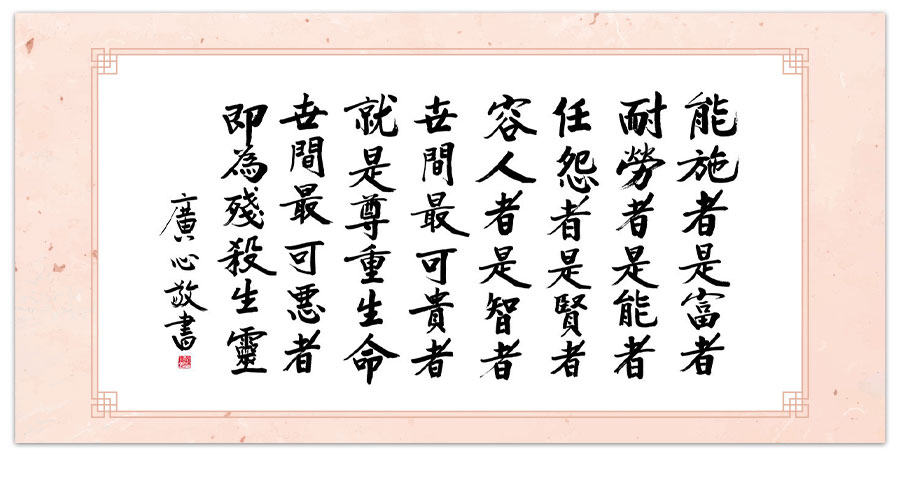 能施者是富者
耐勞者是能者
任怨者是賢者
容人者是智者
世間最可貴者
就是尊重生命
世間最可惡者
即為殘殺生靈
廣心敬書